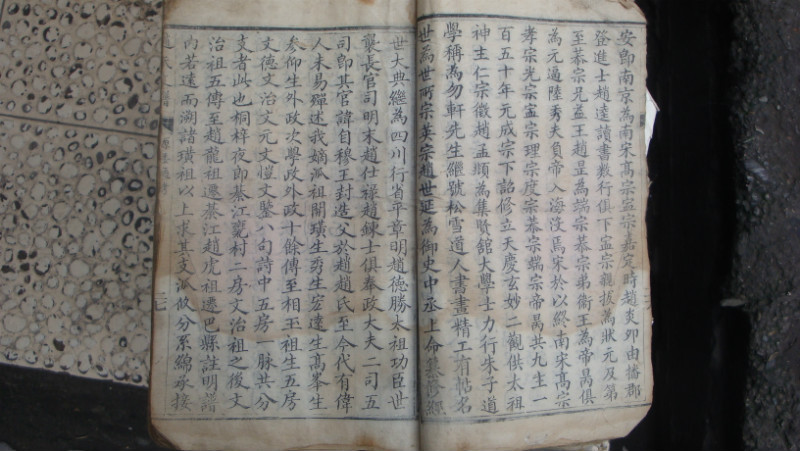 安即南京為南宋高宗寧宗嘉定時趙炎卯由播郡
登進士趙逵讀書數行俱下孟宗親拔為狀元及第
至恭宗兄益王趙昰為端宗恭宗弟衛王為帝昺俱
為元逼陸秀夫負帝入海沒焉宋於以終南宋高宗
孝宗光宗寧宗理宗度宗恭宗端宗帝昺共九主一
百五十年元成宗下詔修立天慶玄妙二觀供太祖
神主仁宗徵趙孟頫為集賢館大學士力行朱子道
學稱為勿軒先生繼號松雪道人書畫精工有帖名
世為世所宗英宗趙世延為御史中丞上命纂修經
世大典繼為四川行省平章明趙德勝太祖功臣世
襲長官司明末趙仕祿趙鍊士俱奉政大夫二司五
司即其官諱自穆王封造父於趙趙氏至今代有偉
人未易殫述我嫡派祖開璜生秀生宏達生高峯生
参仰生外政次學政外政十餘傳至相王祖生五房
文德文治文元文愷文鑒八句詩中五房一脉共分
支者此也桐梓夜郎綦江甕村二房文治祖之後文
治祖五傳至趙龍祖遷綦江趙虎祖遷巴縣註明譜
內若遠而溯諸璜祖以上求其支派做分系綿承接